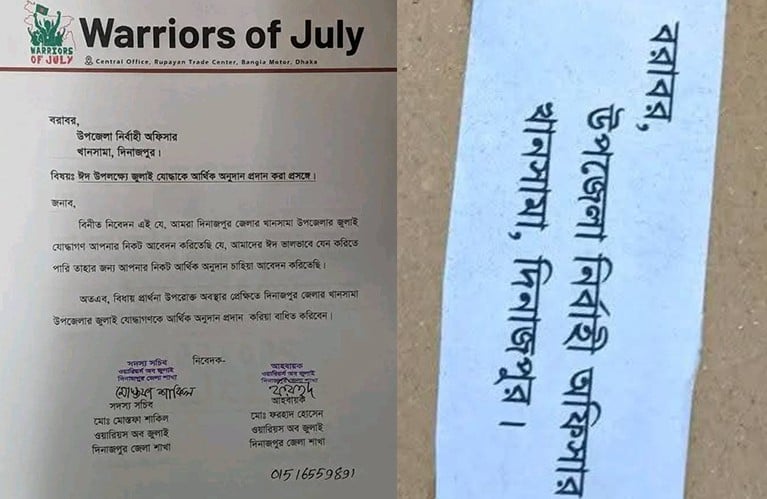 WARRIORS
OF JULY
Warriors of July
Central Office, Rupayan Trade Center, Bangla Motor, Dhaka
বরাবর,
উপজেলা নির্বাহী অফিসার
খানসামা, দিনাজপুর।
বিষয়ঃ ঈদ উপলক্ষ্যে জুলাই যোদ্ধাকে আর্থিক অনুদান প্রদান করা প্রসঙ্গে।
জনাব,
বিনীত নিবেদন এই যে, আমরা দিনাজপুর জেলার খানসামা উপজেলার জুলাই
যোদ্ধাগণ আপনার নিকট আবেদন করিতেছি যে, আমাদের ঈদ ভালভাবে যেন করিতে
পারি তাহার জন্য আপনার নিকট আর্থিক অনুদান চাহিয়া আবেদন করিতেছি।
অতএব, বিধায় প্রার্থনা উপরোক্ত অবস্থার প্রেক্ষিতে দিনাজপুর জেলার খানসামা
উপজেলার জুলাই যোদ্ধাগণকে আর্থিক অনুদান প্রদান করিয়া বাধিত করিবেন।
নিবেদক-
সদস্য সচিব
ওয়ারিয়র্স অব জুলাই
দিনাজপুর জেলা শাখা
মোস্তফা শাকিল
সদস্য সচিব
মোঃ মোস্তফা শাকিল
ওয়ারিয়স অব জুলাই
দিনাজপুর জেলা শাখা
আহবায়ক
ওয়ারিয়র্স অব জুলাই
দিনাজপুর জেলা শাখা
ফরহাদ
আহবায়ক
মোঃ ফরহাদ হোসেন
ওয়ারিয়স অব জুলাই
দিনাজপুর জেলা শাখা
01516559891
বরাবর,
উপজেলা নির্বাহী অফিসার
খানসামা, দিনাজপুর।